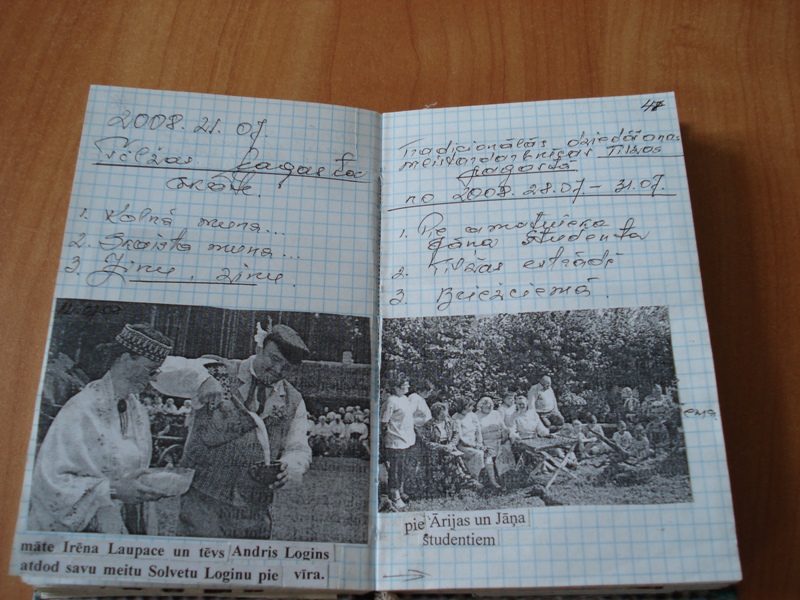 2008. 21. 07.
Tilžas pagasta
1. Kalnā muna...
2. Skaista muna...
3. Zinu, zinu.
māte Irēna Laupace un tēvs Andris Logins
atdod savu meitu Solvetu Loginu pie vīra.
47
Tradicionālās dziedāšanas
meistardarbnīcas Tilžas
pagastā
no 2008. 28.07 - 31.07.
1. Pie amatnieka
Jāņa Studenta
2. Tilžas estrādē
3. Briežciemā.
pie Ārijas un Jāņa
studentiem